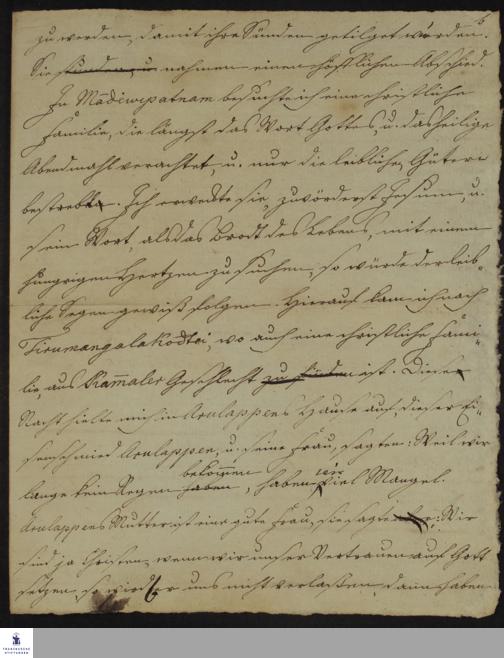 6
zu werden, damit ihre Sünden getilget würden.
Sie stunden, u. nahmen einen höfflichen Abschied.
In Mādēwipatnam besuchte ich eine christliche
Familie, die längst das Wort Gottes, u. das heilige
Abendmahl verachtet, u. nur die leiblichen Gütern
bestrebt. Ich erweckte sie, zuvörderst Jesum, u.
sein Wort, als das Brodt des Lebens, mit einem
hungrigen Hertzen zu suchen, so würde der leib-
liche Segen gewiß folgen. Hierauf kam ich nach
Tirumangalakōdtei, wo auch eine christliche Fami-
lie, aus Kammaler Geschlecht zu finden ist. Diese
Nacht hielte mich in Arulappens Hause auf, dieser Ei-
senschmied Arulappen, u. seine Frau, sagten: Weil wir
bekommen wir
lange kein Regen haben, haben viel Mangel.
Arulappens Mutter ist eine gute Frau, sie sagte: Wir
sind ja Christen, wenn wir unser Vertrauen auf Gott
setzen, so wird er uns nicht verlaßen, dann haben
FRANCKESCHE
STIFTUNGEN